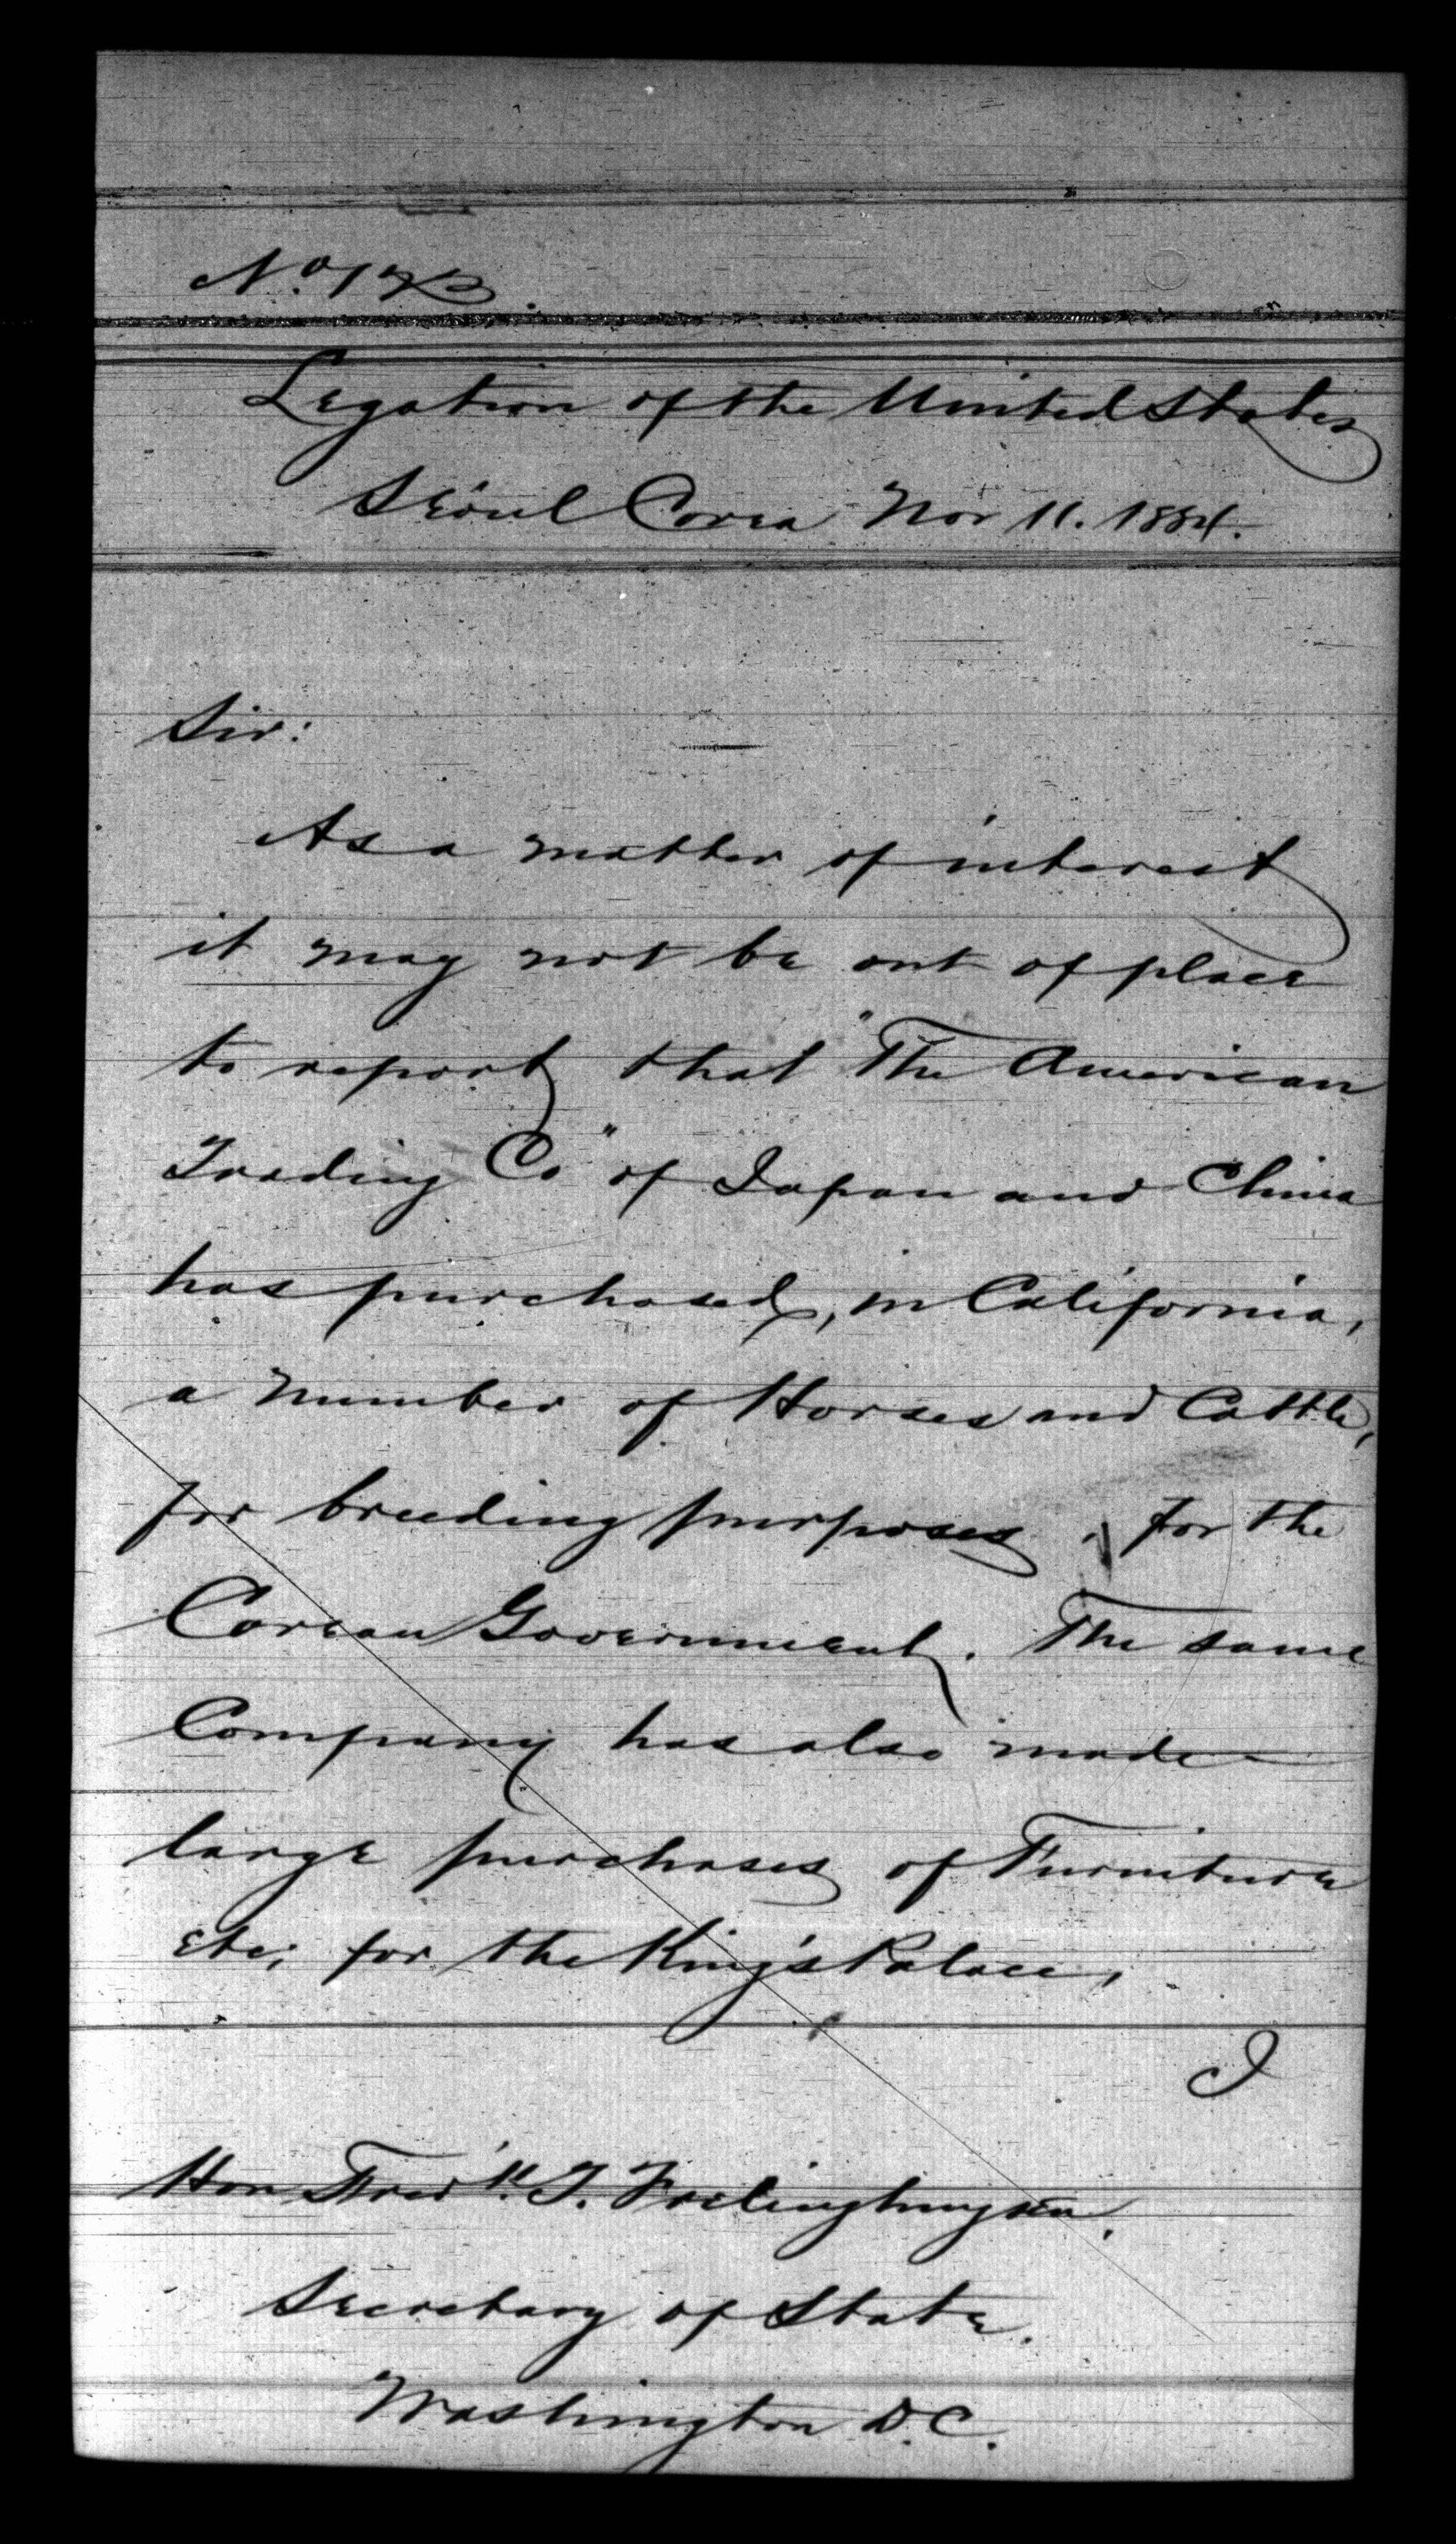 Legation of the United States
Séoul Corea Nov 11. 1884.
Sir:
As a matter of interest
it may not be out of place
to report that "The American
Trading Co" of Japan and China
has purchased, in California,
a number of Horses and Cattle,
for breeding purposes, for the
Corean Government. The same
Company has also made
large purchases of Furniture
etc; for the King's Palace,
I
Hon Fred'k. T. Frelinghuysen,
Secretary of State.
Washington D.C.